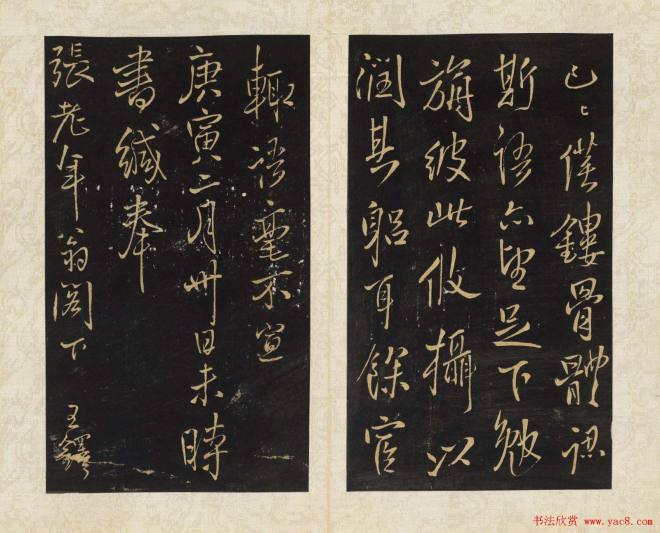 已〻僕鏤骨體認
斯語亦望足下勉
旃彼此攸攝以
潤其躳耳餘
輒語毫不宣
庚寅二月卅日未時
書緘奉
張老年翁閣下 王鐸
书法欣赏 www.yac8.com